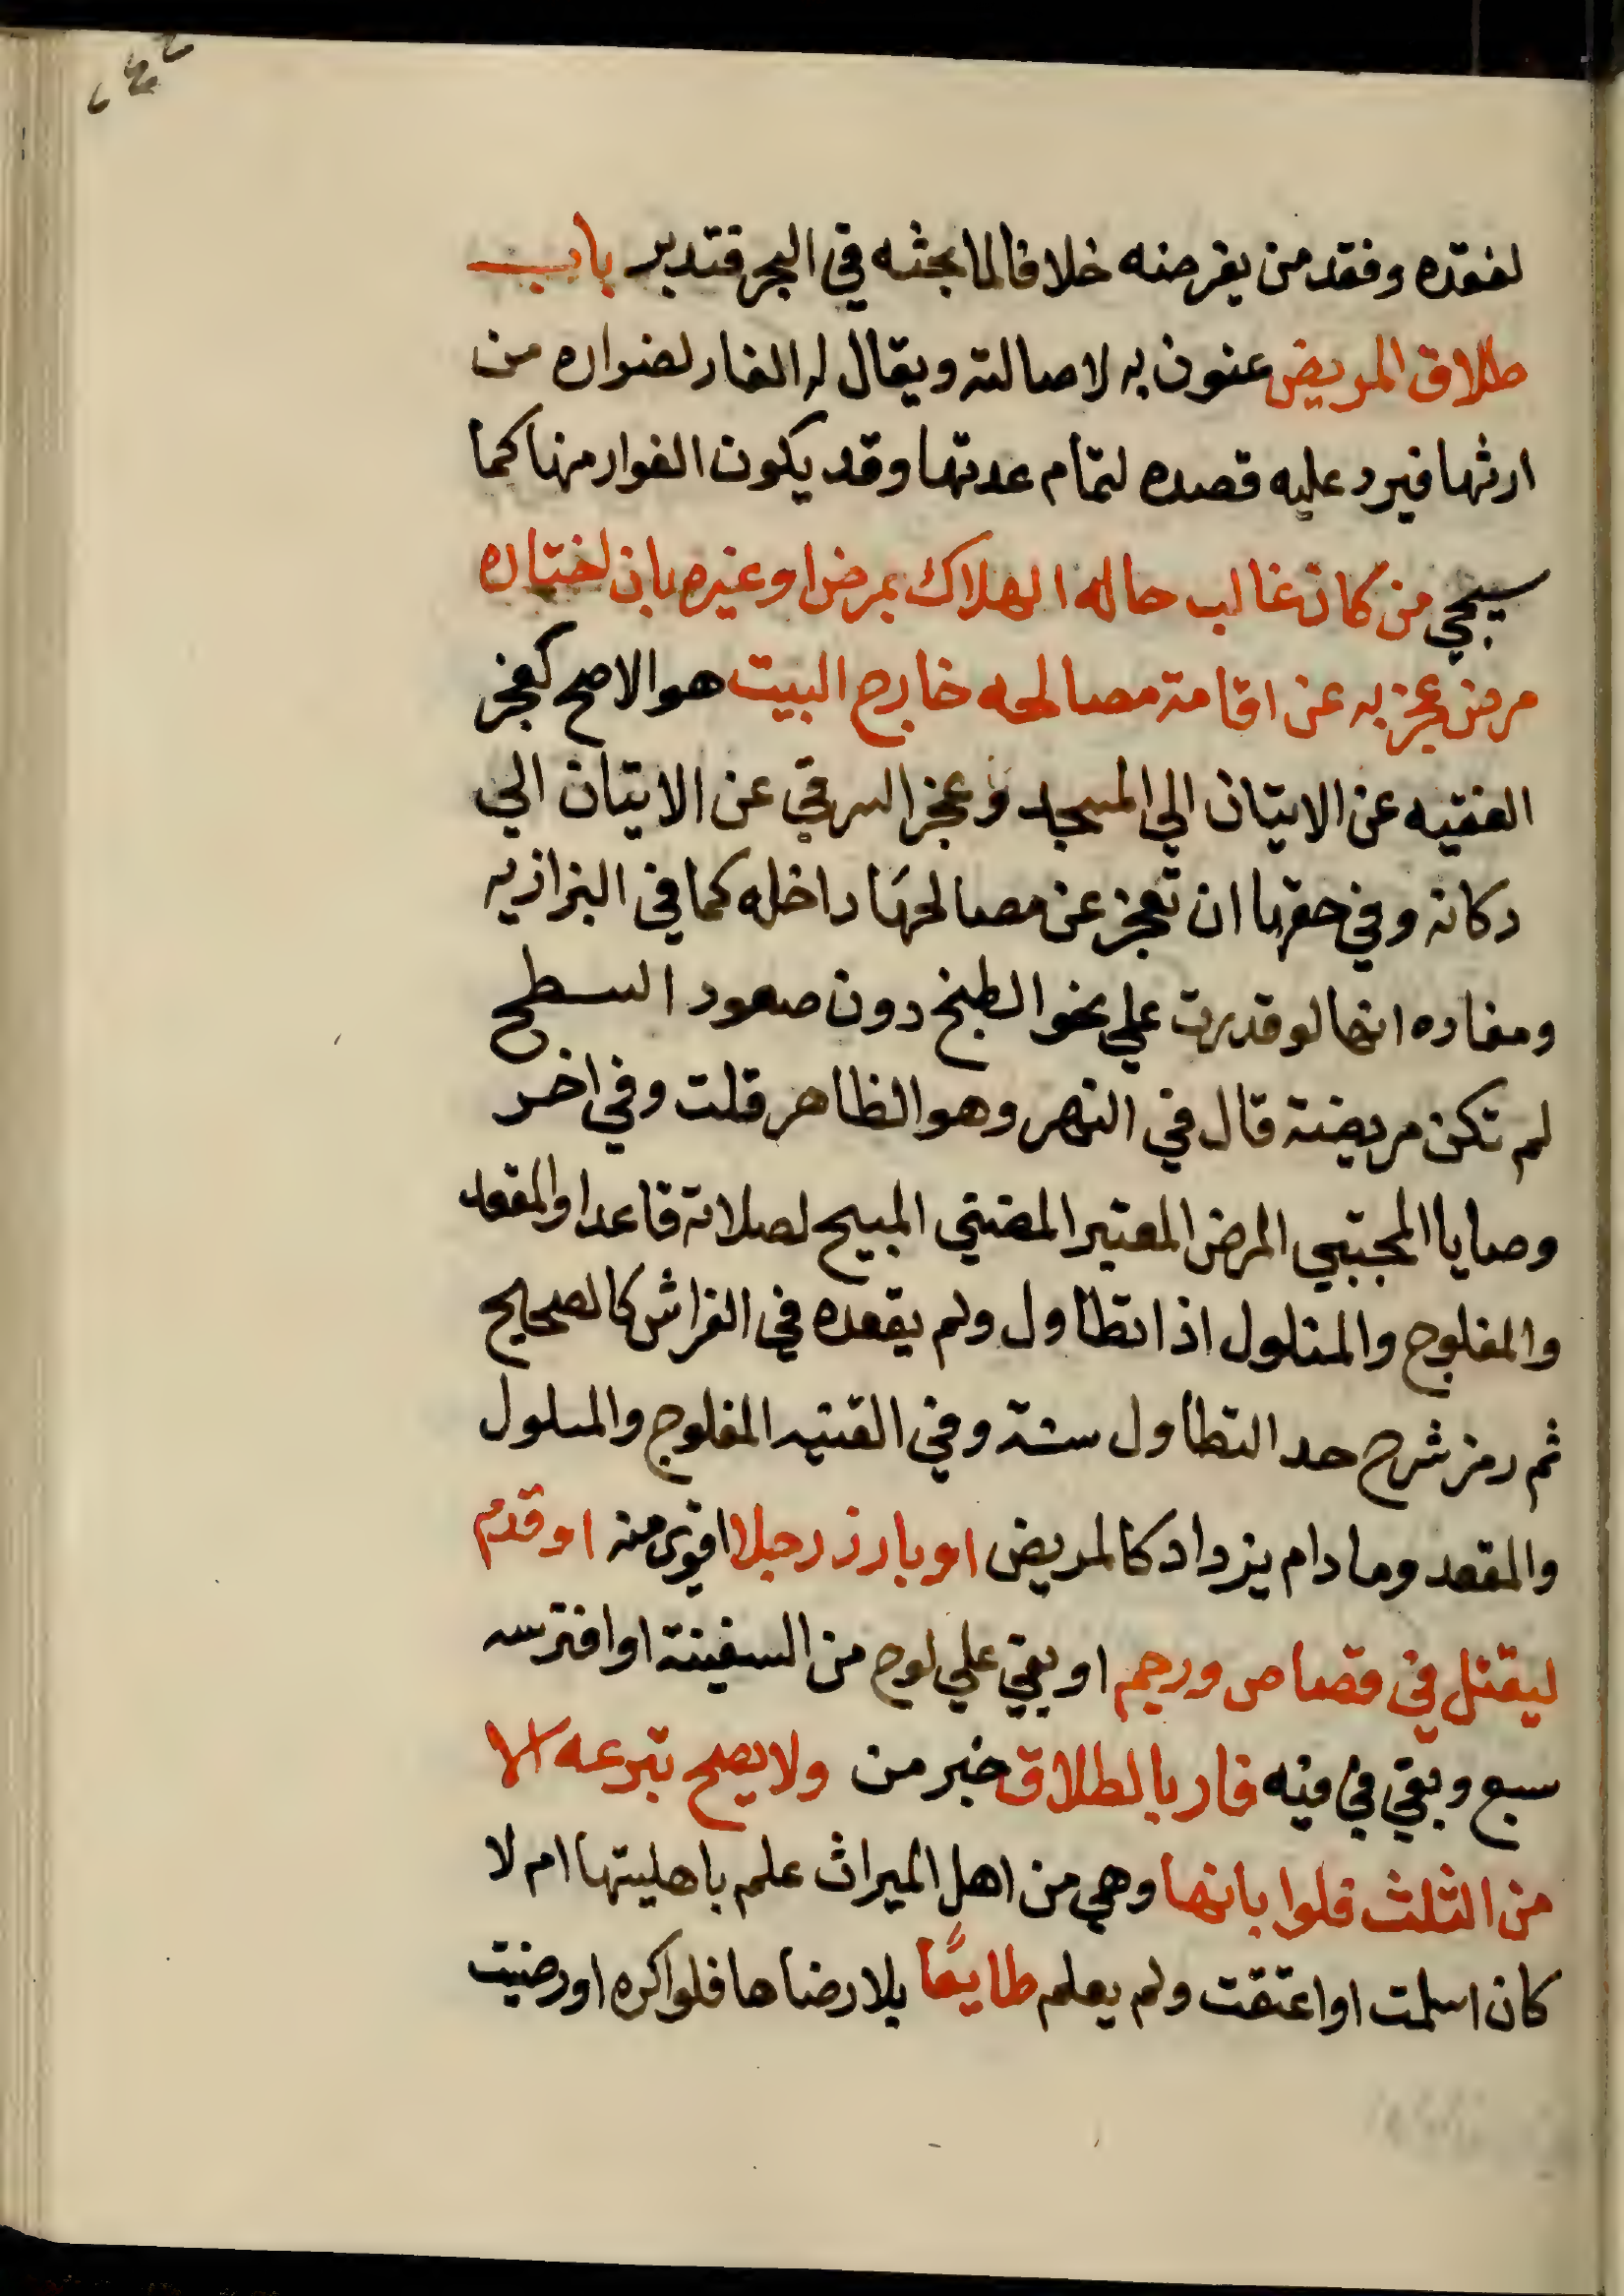 ٢٤٤
لفقده وفقد من يفرضه خلافا لما بحثه في البحر فتدبر باب
طلاق المريض عنون به لاصالته ويقال له الفار لفراره من
ارثها فيرد عليه قصده لتمام عدتها وقد يكون الفرار منها كما
سيجي من كان غالب حاله الهلاك بمرض او غيره بان اختاره
مرض عجز به عن اقامة مصالحه خارج البيت هو الاصح كعجز
الفقيه عن الاتيان الي المسجد وعجز السوقي عن الاتيان الي
دكانه وفي حقها ان تعجز عن مصالحها داخله كما في البزازيه
ومفاده انها لو قدرت علي نحو الطبخ دون صعود السطح
لم تكن مريضة قال في النهر وهو الظاهر قلت وفي اخر
وصايا المجتبي المرض المعتبر المضني المبيح لصلاته قاعدا والمقعد
والمفلوج والمسلول اذا تطاول ولم يقعده في الفراش كالصحيح
ثم رمز شرح حد التطاول سنة وفي القنيه المفلوج والمسلول
والمقعد وما دام يزداد كالمريض او بارز رجلا اقوي منه او قدم
ليقتل في قصاص ورجم او بقي علي لوح من السفينة او افترسه
سبع وبقي في فيه فار بالطلاق خبر من ولا يصح تبرعه الا
من الثلث فلوا بانها وهي من اهل الميراث علم باهليتها ام لا
كان اسلمت او اعتقت ولم يعلم طايعًا بلا رضاها فلو اكره او رضيت